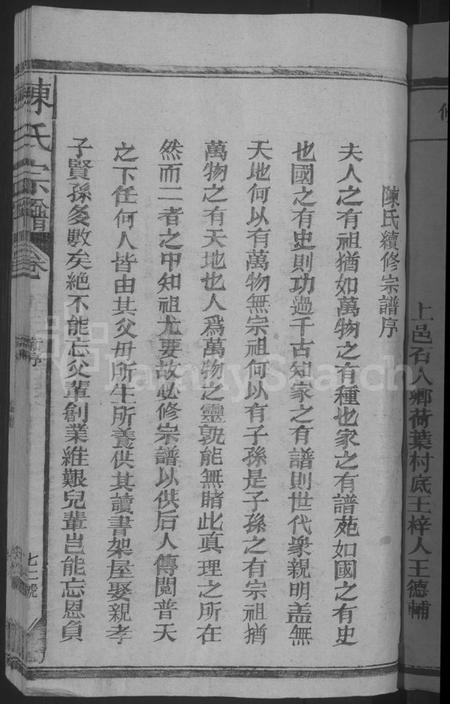 上邑石人鄉荷葉村底王梓人王德輔
陳氏續修宗譜序
夫人之有祖猶如萬物之有種也家之有譜苑如國之有史
也國之有史則功過千古知家之有譜則世代衆親明盖無
天地何以有萬物無宗祖何以有子孫是子孫之有宗祖猶
萬物之有天地也人爲萬物之靈孰能無賭此真理之所在
然而二者之中知祖尤要故必修宗譜以供后人傳閲普天
之下任何人皆由其父毋所生所養供其讀書架屋娶親孝
子賢孫多數矣絶不能忘父輩創業維艱兒輩豈能忘恩負
陳氏宗譜
卷
序
七二號
FamilySearch